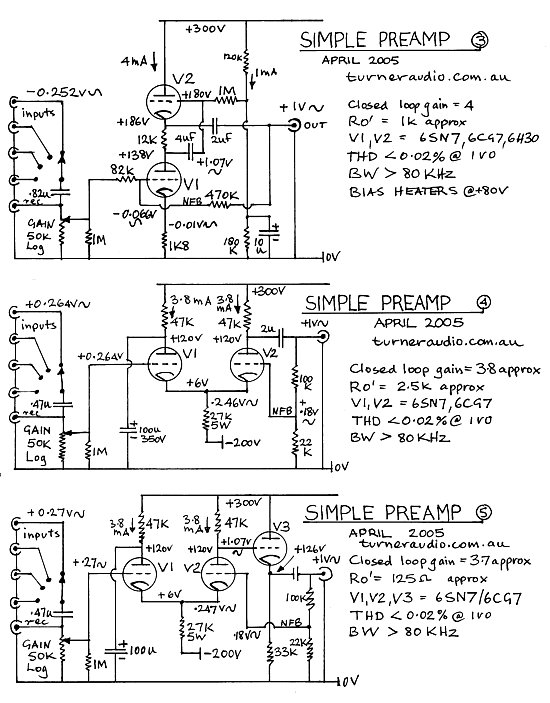 +300V
SIMPLE PREAMP 3
APRIL 2005
turneraudio.com.au
4mA
120K
1mA
V2
+180V
1M
-0.252V~
inputs
+186V
12K
4uF
2uF
+1V~
OUT
+138V
+1.07V~
82K
V1
470K
.82u
rec
NFB
-0.066V~
-0.01V~
GAIN
50K
Log
1M
1K8
180
K
10
u
0V
Closed loop gain = 4
Ro' = 1k approx
V1,V2 = 6SN7, 6CG7, 6H30
THD <0.02% @ 1V0
BW > 80 KHz
BIAS HEATERS @+80V
+300V
SIMPLE PREAMP 4
APRIL 2005
turneraudio.com.au
+0.264V~
inputs
3.8mA
3.8
mA
47K
47K
2u
+1V~
+120V
+120V
V1
V2
+0.264V
+6V
100
K
.246V~
NFB
+
.18V
~
.47u
rec
27K
5W
-200V
GAIN
50K
Log
1M
100u
350V
22
K
0V
Closed loop gain = 3.8 approx
Ro' = 2.5k approx
V1,V2 = 6SN7, 6CG7
THD <0.02% @ 1V0
BW > 80 KHz
+300V
SIMPLE PREAMP 5
APRIL 2005
turneraudio.com.au
+0.27V~
inputs
3.8
mA
47K
3.8
mA
47K
V3
+1.07V
~
+120V
+120V
+126V
+1V~
+.27~
V1
V2
+6V
.247V~
100K
.47u
rec
27K
5W
.18V~
NFB
-200V
GAIN
50K
Log
1M
100u
33K
22K
0V
Closed loop gain = 3.7 approx
Ro' = 125Ω approx
V1,V2,V3 = 6SN7/6CG7
THD <0.02% @ 1V0
BW > 80 KHz